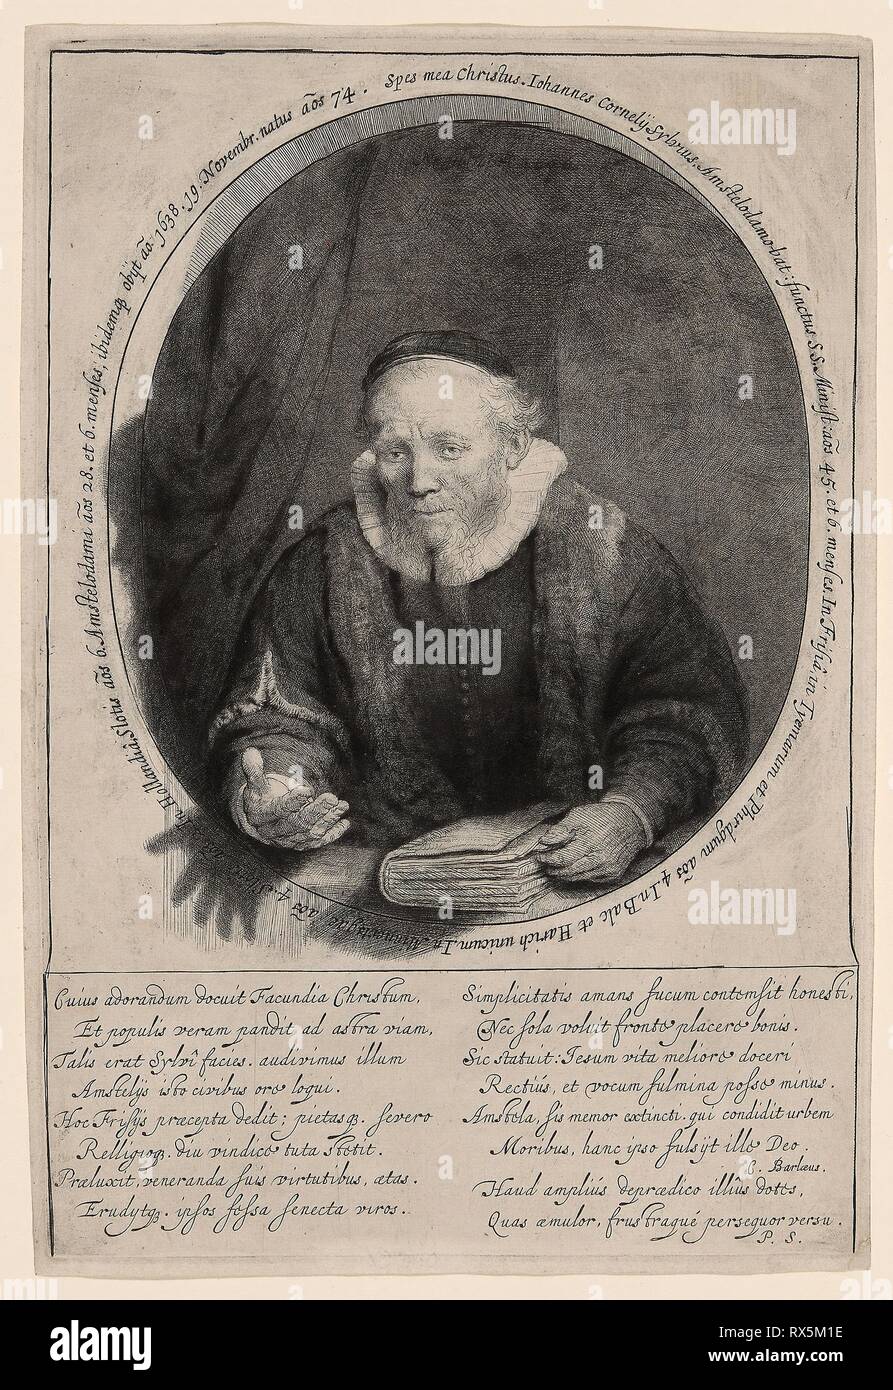 Spes mea Christus. Iohannes Cornelÿ Sylvius. Amstelodamobat: functus S S. Minist: aõs 45. et 6. menses. In Frisiâ in Tyemarum et Phirdgum aõs 4. In Balc et Harich unicum. In Minnertsgae aõs 4. In Hollandiâ, Slotis aõs 6. Amstelodami aõs 28. et 6. menses; ibidemqꝫ obijt aõ. 1638. 19. Novembr. natus aõs 74.
Cuius adorandum docuit Facundia Christum,
Et populis veram pandit ad astra viam,
Talis erat Sylvî facies. audivimus illum
Amstelÿs isto civibus ore loqui.
Hoc Frisÿs præcepta dedit; pietasqꝫ. severo
Relligioqꝫ. diu vindice tuta stetit.
Præluxit, veneranda suis virtutibus, ætas.
Erudytqꝫ. ipsos fessa senecta viros.
Simplicitatis amans fucum contemsit honesti,
Nec sola voluit fronte placere bonis.
Sic statuit: Jesum vita meliore doceri
Rectiùs, et vocum fulmina posse minus.
Amstela, sis memor extincti. qui condidit urbem
Moribus, hanc ipso fulsÿt ille Deo.
C. Barlæus.
Haud ampliús deprædico illîus dotes,
Quas æmulor, frustraqué persequor versu.
P. S.
alamy
alamy
Image ID: RX5M1E
www.alamy.com